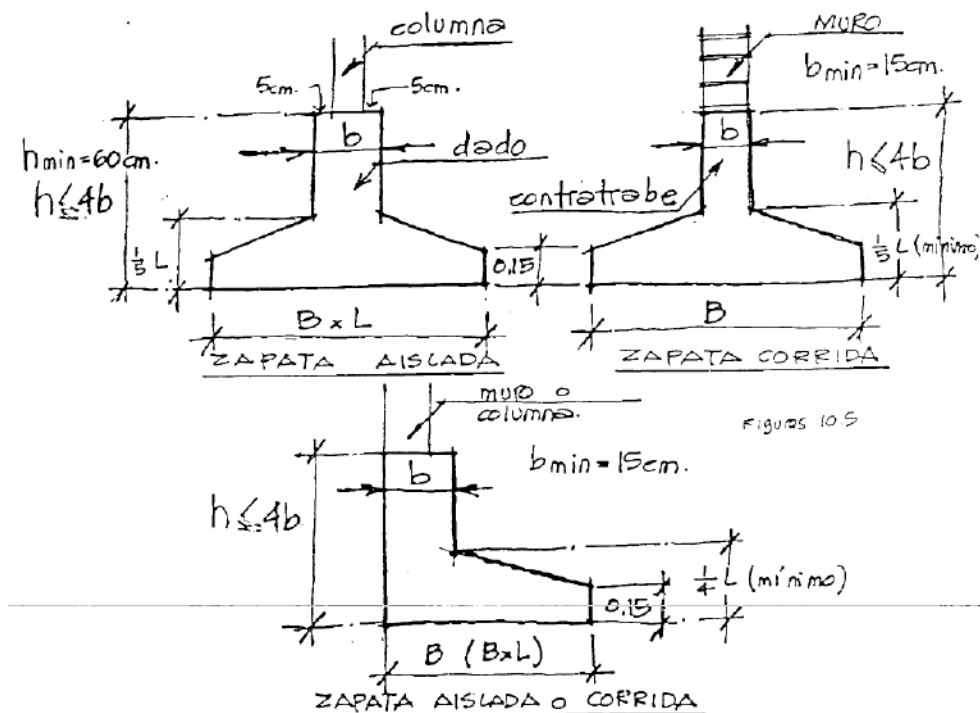 columna
5cm.
5cm.
b
hmin=60cm.
h≤4b
dado
1/5 L
0.15
B x L
ZAPATA AISLADA
MURO
bmin=15cm.
b
h≤4b
contratrabe
1/5 L (mínimo)
B
ZAPATA CORRIDA
Figuras 10.5
muro o
columna.
b
bmin=15cm.
h≤4b
1/4 L (mínimo)
0.15
B (BxL)
ZAPATA AISLADA o CORRIDA